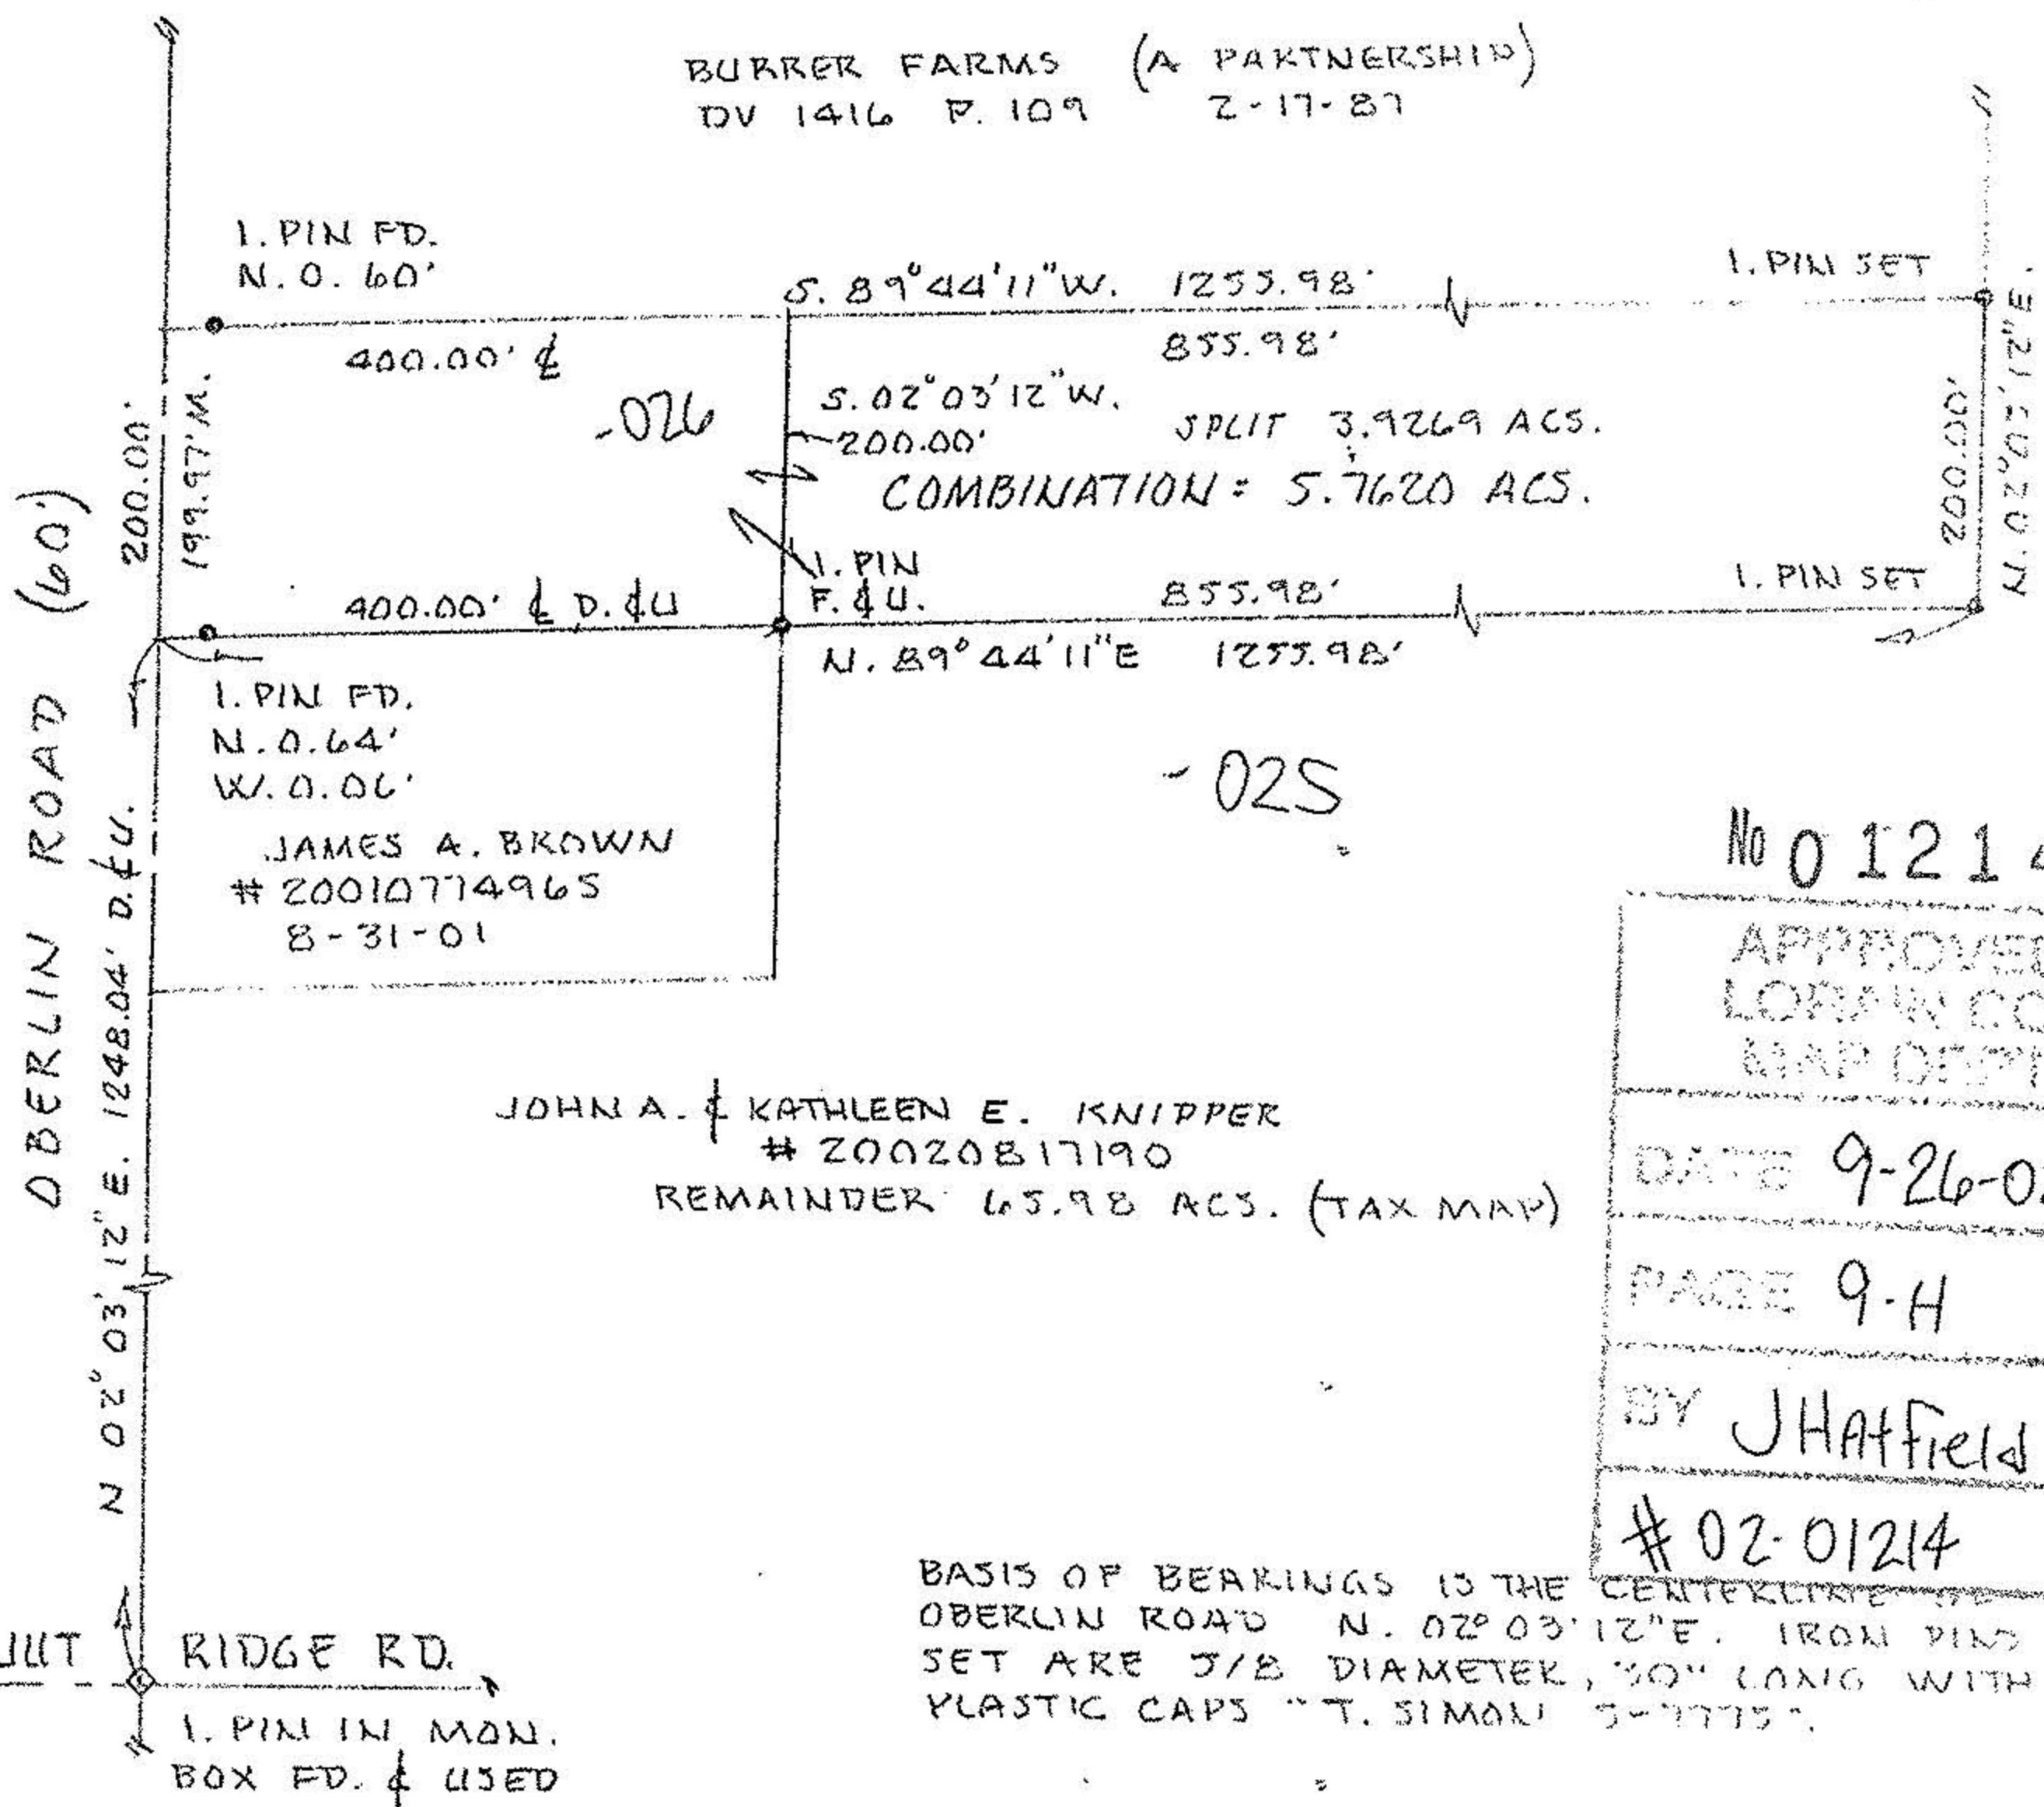 BURRER FARMS (A PARTNERSHIP)
DV 1416 P. 109 2-17-87
I. PIN FD.
N. 0.60'
S. 89°44'11"W. 1255.98'
I. PIN SET
400.00' ¢
855.98'
200.00'
199.97' M.
-026
S. 02°03'12"W.
200.00'
SPLIT 3.9269 ACS.
COMBINATION: 5.7620 ACS.
200.00'
N. 02°03'12"E.
I. PIN
F. & U.
400.00' & D. & U
855.98'
I. PIN SET
N. 89°44'11"E 1255.98'
OBERLIN ROAD (60')
I. PIN FD.
N. 0.64'
W. 0.06'
-025
JAMES A. BROWN
# 20010774965
8-31-01
N 02° 03' 12" E. 1248.04' D. & U.
No 0121
APPROVED
LORAIN CO
MAP
DATE 9-26-0
PAGE 9-H
BY JHAtField
# 02-01214
JOHN A. & KATHLEEN E. KNIPPER
# 20020817190
REMAINDER 65.98 ACS. (TAX MAP)
BASIS OF BEARINGS IS THE CENTERLINE OF
OBERLIN ROAD N. 02° 03' 12"E. IRON PINS
SET ARE 5/8 DIAMETER, 30" LONG WITH
PLASTIC CAPS "T. SIMON S-7775".
RIDGE RD.
I. PIN IN MON.
BOX FD. & USED